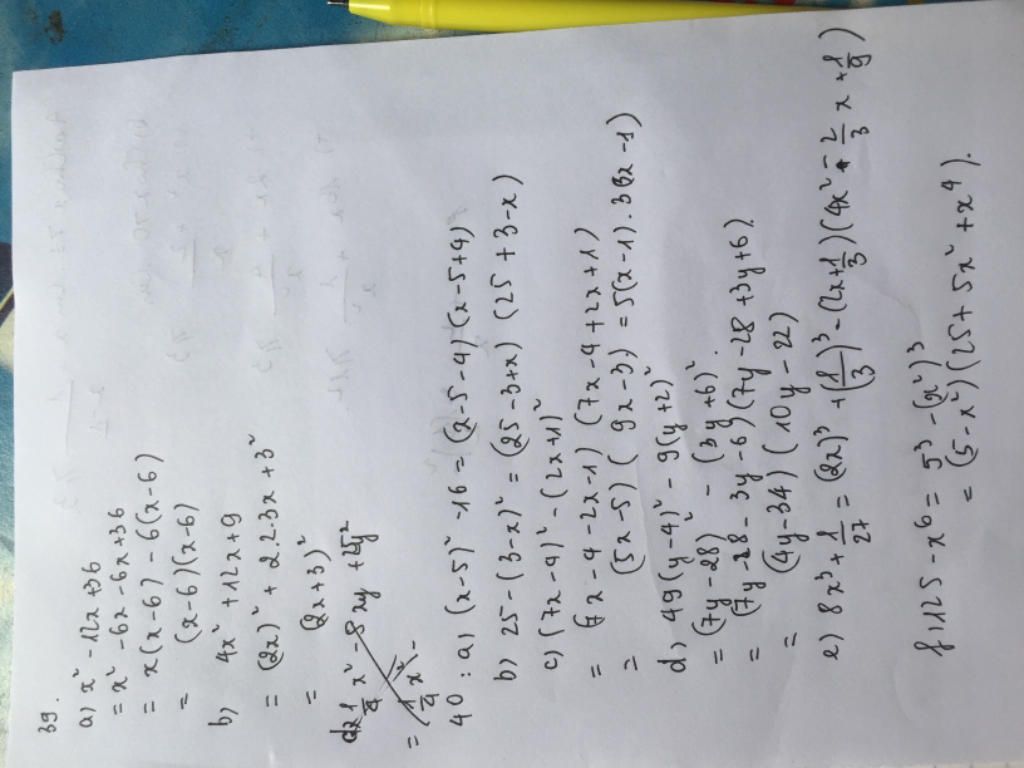 39.
a) x² - 12x + 36
= x² - 6x - 6x + 36
= x(x-6) - 6(x-6)
= (x-6)(x-6)
b) 4x² + 12x + 9
= (2x)² + 2.2.3x + 3²
= (2x+3)²
40 : a) (x-5)² - 16 = (x-5-4)(x-5+4)
b) 25 - (3-x)² = (25-3+x)(25+3-x)
c) (7x-4)² - (2x+1)²
= (7x-4-2x-1)(7x-4+2x+1)
= (5x-5)(9x-3) = 5(x-1).3(3x-1)
d) 49(y-4)² - 9(y+2)²
= (7y-28)² - (3y+6)².
= (7y-28-3y-6)(7y-28+3y+6)
= (4y-34)(10y-22)
e) 8x³ + 1/27 = (2x)³ + (1/3)³ - (2x+1/3)(4x² - 2/3 x + 1/9)
f) 125 - x⁶ = 5³ - (x²)³
= (5-x²)(25+5x²+x⁴).